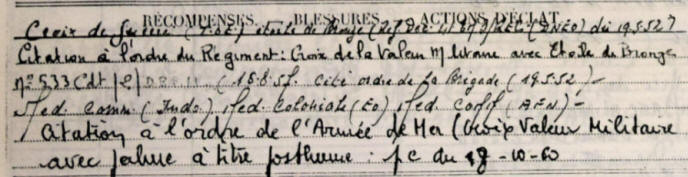 RÉCOMPENSES. BLESSURES. ACTIONS D'ÉCLAT
Croix de Guerre (T.O.E.) étoile de Bronze du 19.5.52
Citation à l'ordre du Régiment: Croix de la Valeur Militaire avec Etoile de Bronze
n° 533 Cdt (16.8.57. Cité ordre de la Brigade (19.5.52) -
Med. Comm. (Indo.) Med. Coloniale (EO) Med. (AFN) -
Citation à l'ordre de l'Armée de Mer (Croix Valeur Militaire
avec palme à titre posthume : -10-60